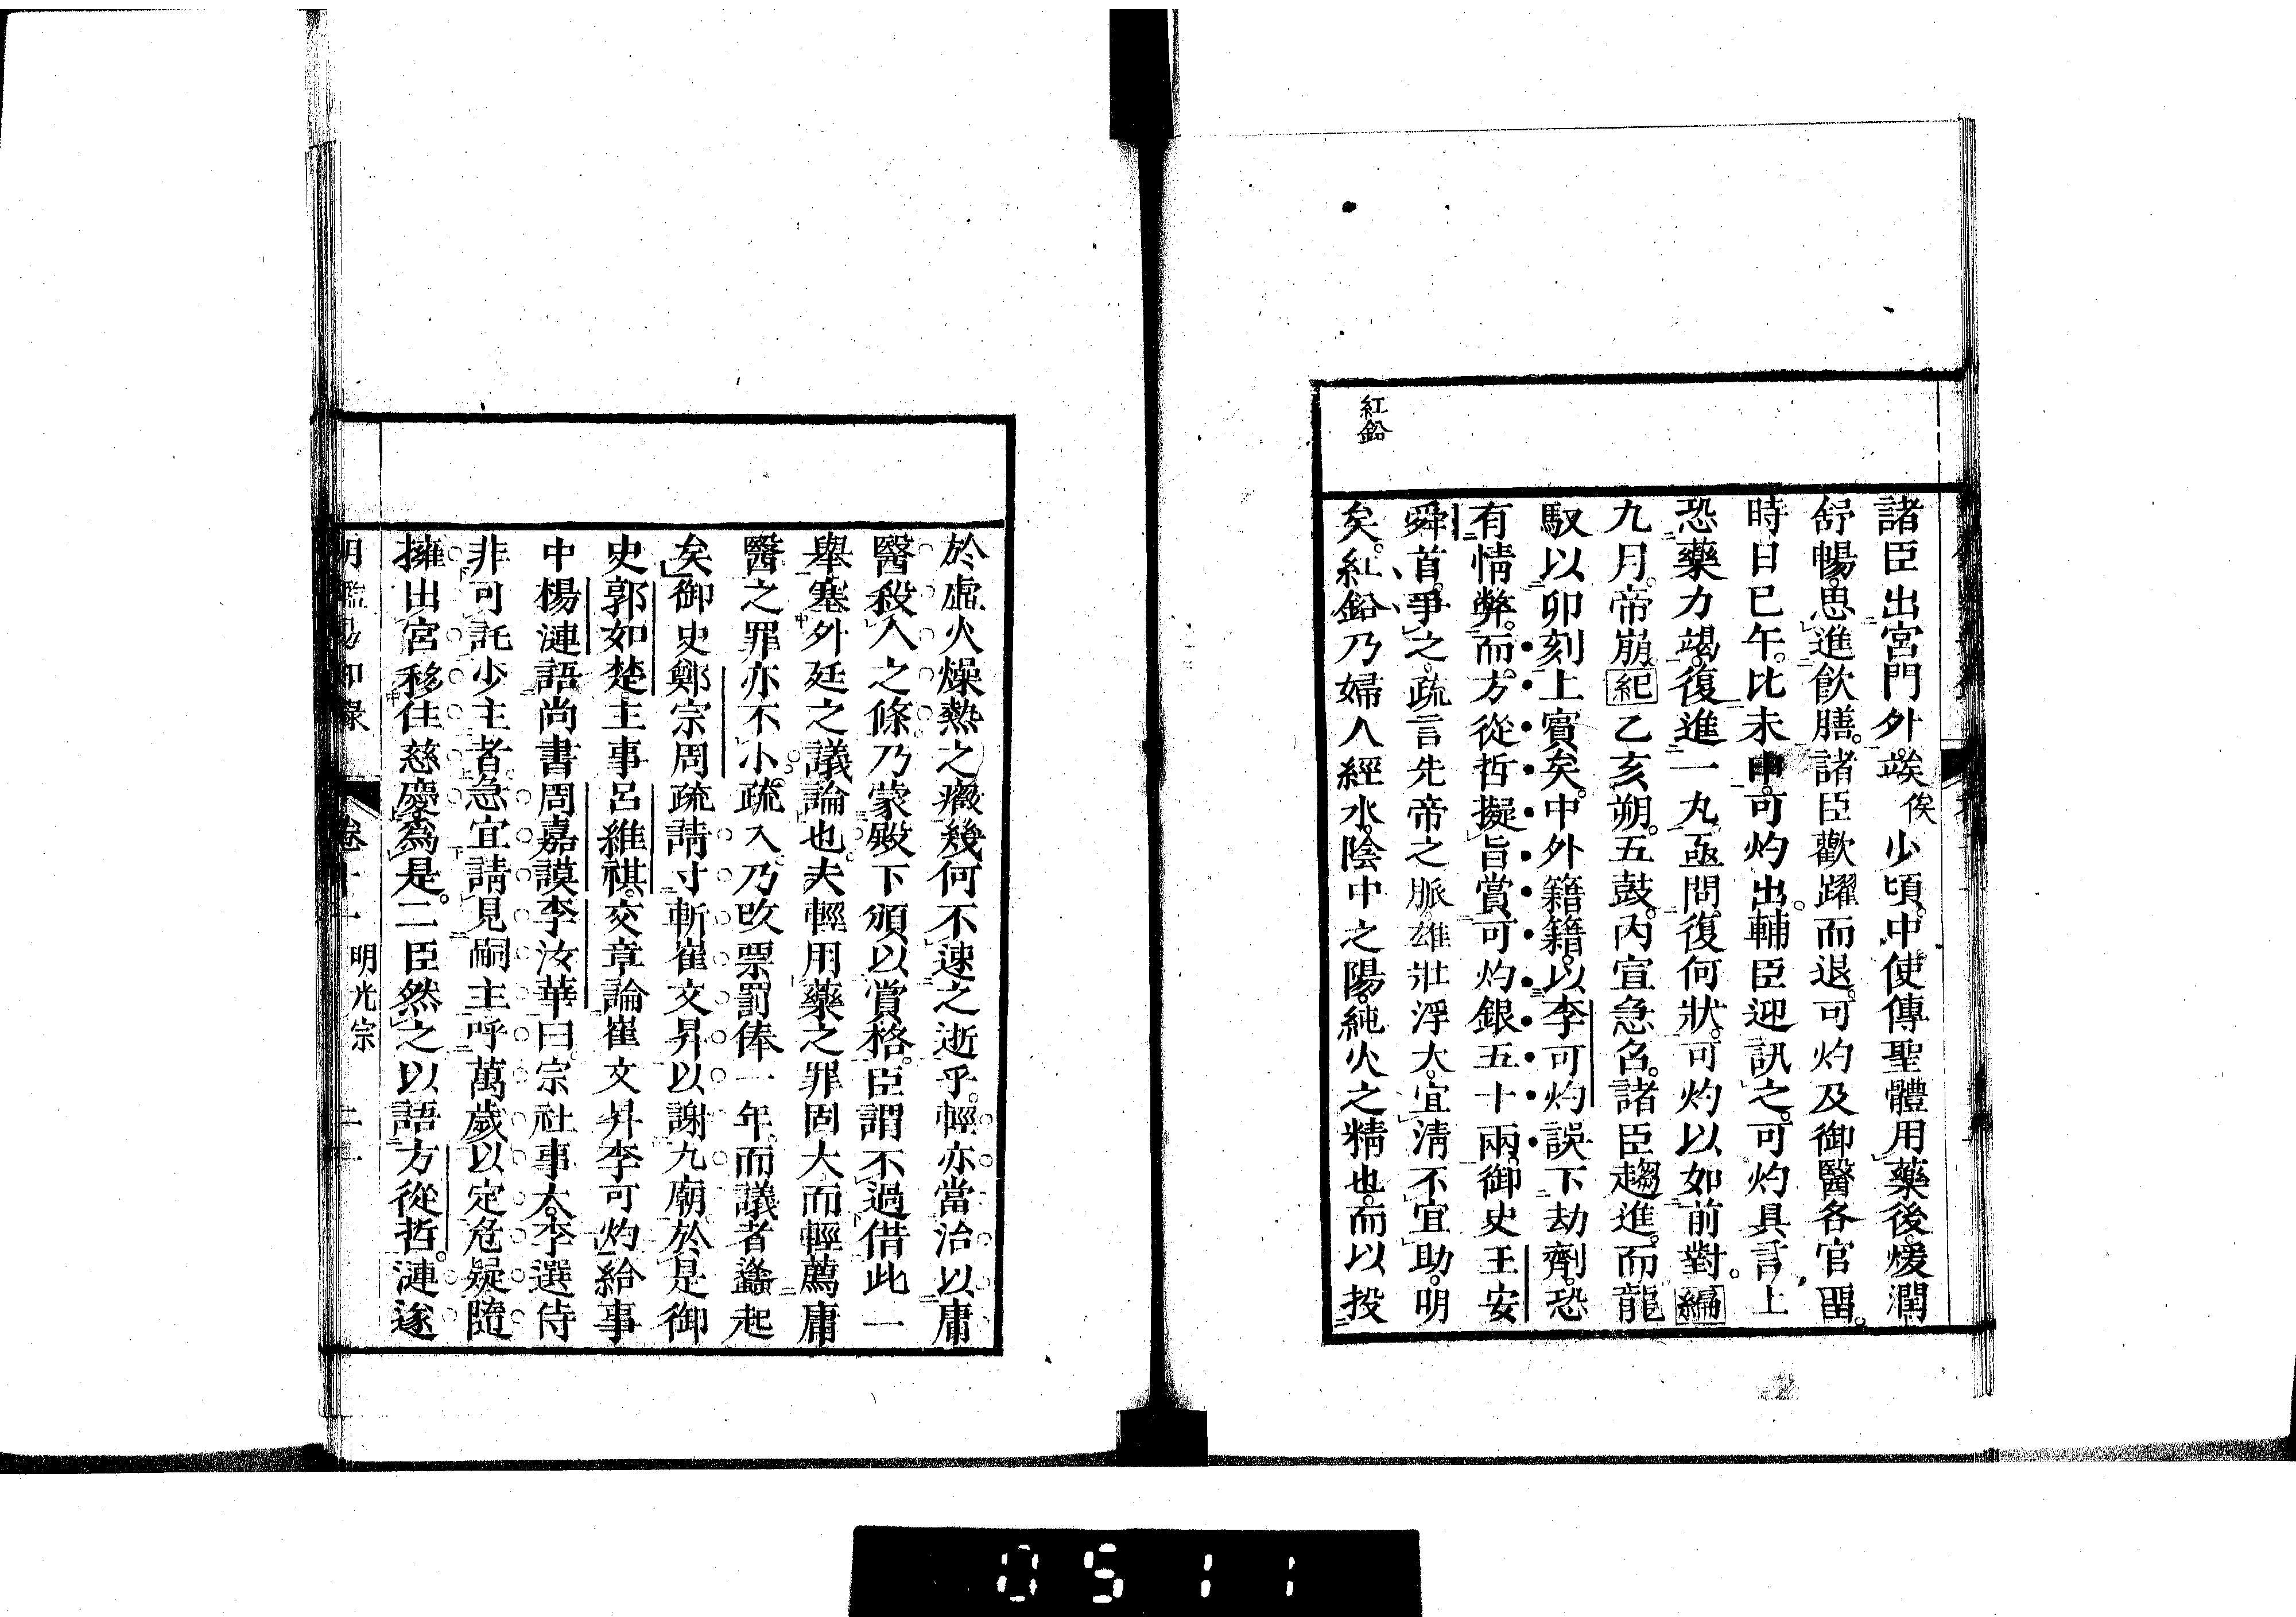 紅鉛
諸臣出宮門外。竢俟少頃。中使傳聖體用藥後。煖潤
舒暢。思進飲膳。諸臣歡躍而退。可灼及御醫各官留。
時日已午。比未申。可灼出。輔臣迎訊之。可灼具言上
恐藥力竭。復進一丸。亟問。復何狀。可灼以如前對。編
九月。帝崩。紀乙亥朔。五鼓。內宣急召。諸臣趨進。而龍
馭以卯刻上賓矣。中外籍籍。以李可灼誤下劫劑。恐
有情弊。而方從哲擬旨賞可灼銀五十兩。御史王安
舜首爭之。疏言先帝之脈雄壯浮大。宜淸不宜助。明
矣。紅鉛乃婦人經水。陰中之陽。純火之精也。而以投
於虛火燥熱之癥。幾何不速之逝乎。輕亦當治以庸
醫殺人之條。乃蒙殿下頒以賞格。臣謂不過借此一
舉塞外廷之議論也。夫輕用藥之罪固大。而輕薦庸
醫之罪亦不小。疏入。乃改票罰俸一年。而議者蠭起
矣。御史鄭宗周疏請寸斬崔文昇以謝九廟。於是御
史郭如楚。主事呂維祺。交章論崔文昇李可灼。給事
中楊漣語尚書周嘉謨李汝華曰。宗社事大。李選侍
非可託少主者。急宜請見嗣主。呼萬歲以定危疑。隨
擁出宮。移住慈慶爲是。二臣然之。以語方從哲。漣遂
明鑑易知錄 卷十一 明光宗 二十一
0511